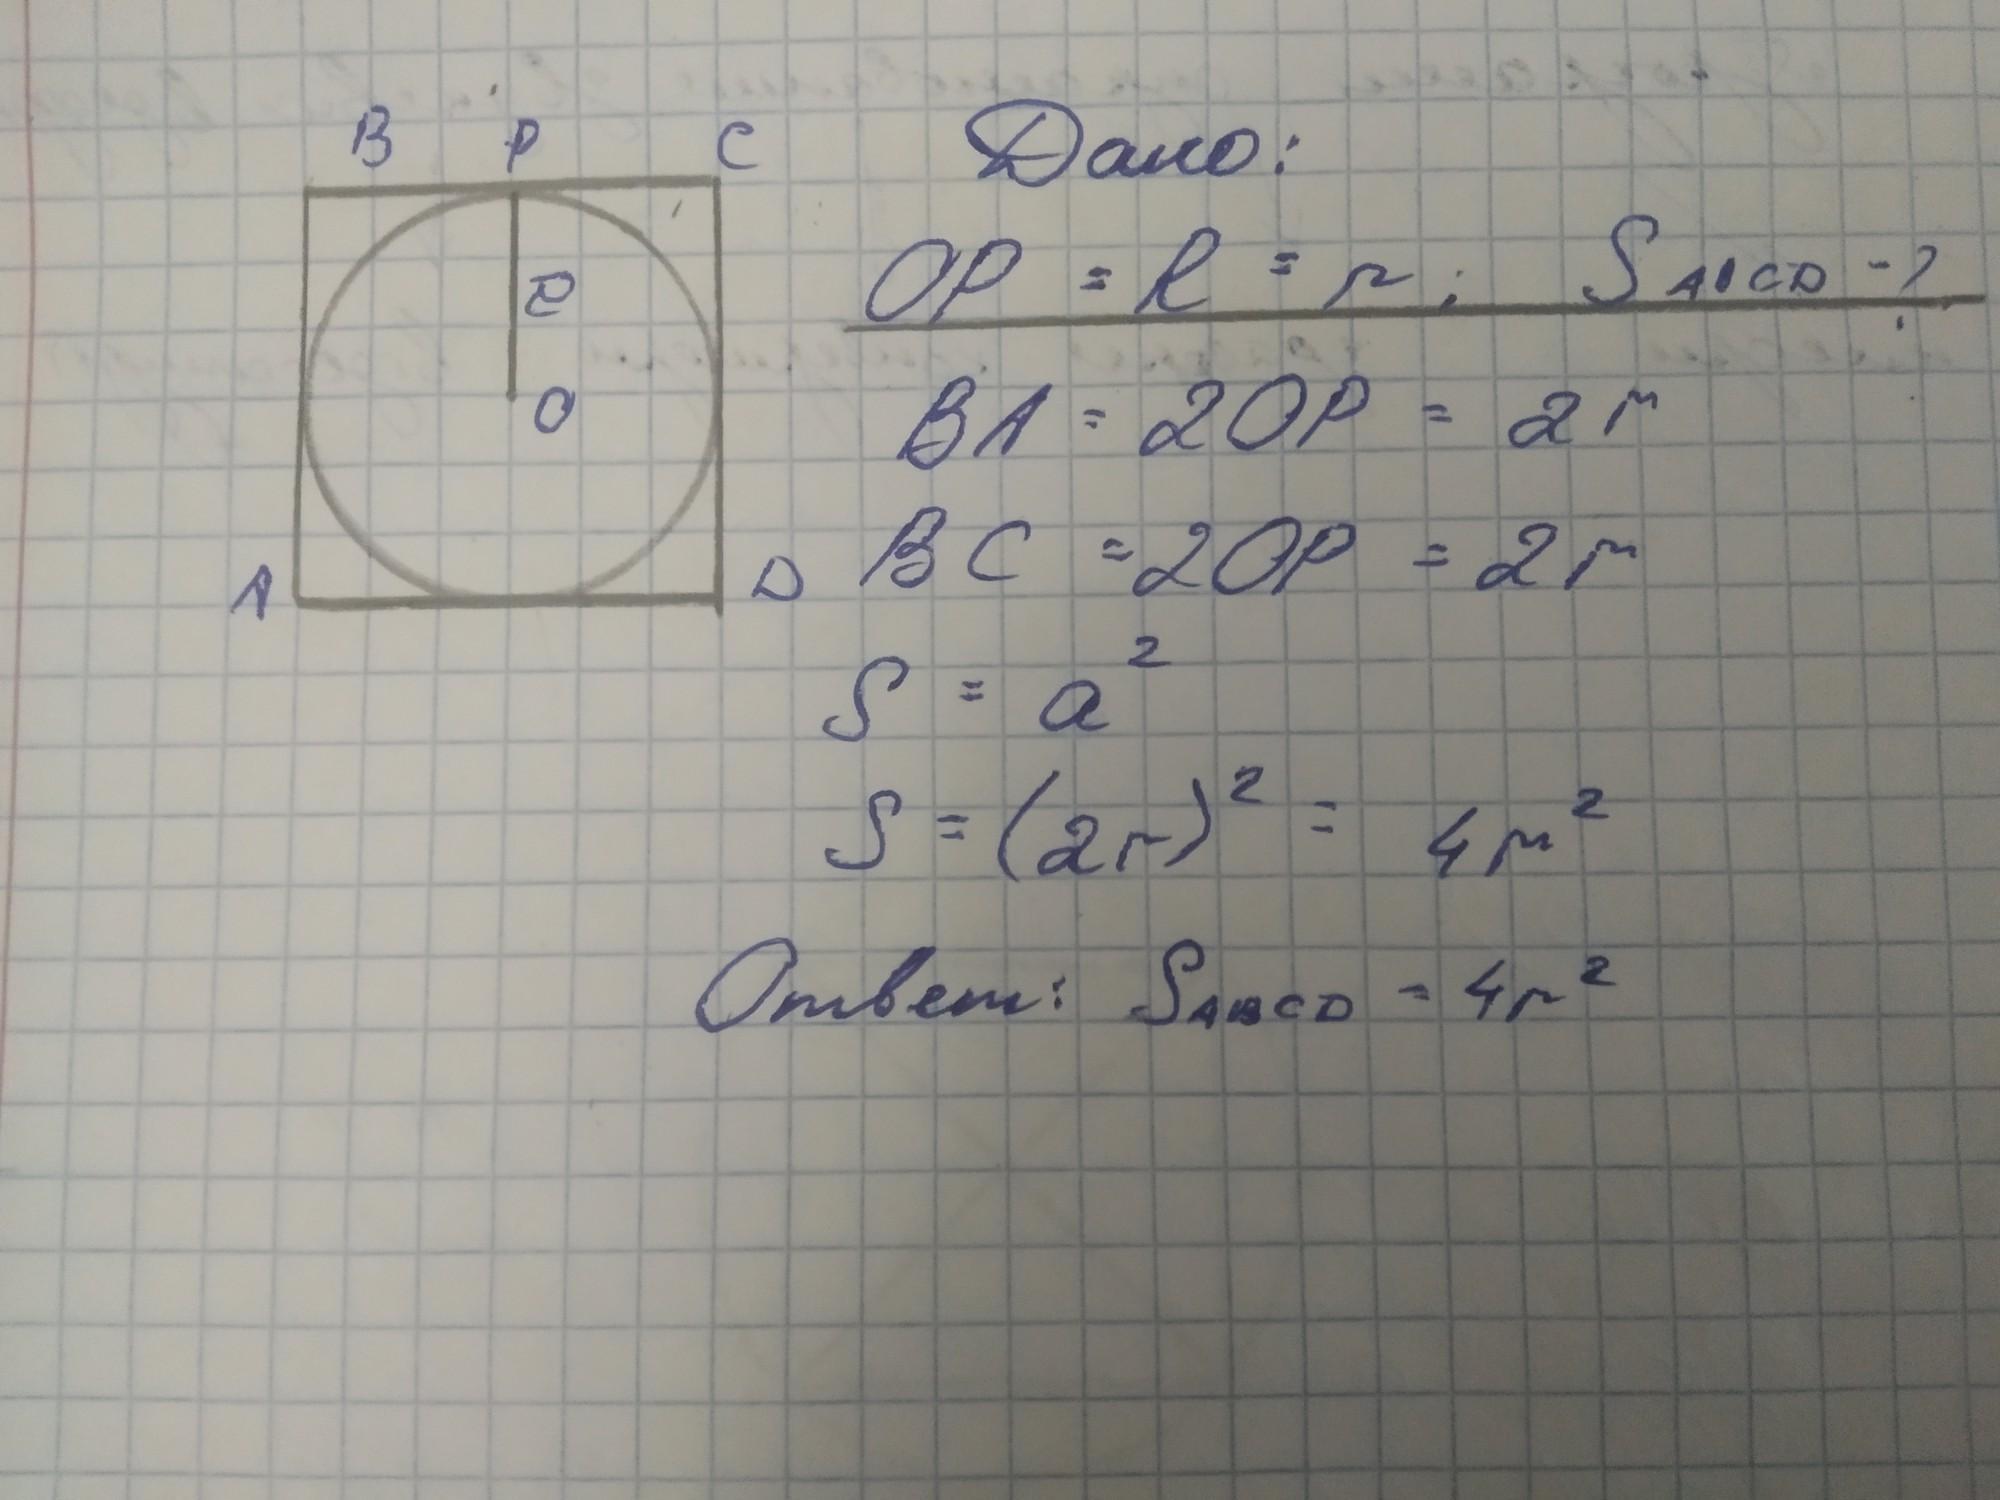 B P C
Дано:
OP = R = r; S ABCD - ?
R
O
BA = 2OP = 2r
A D
BC = 2OP = 2r
S = a²
S = (2r)² = 4r²
Ответ: S ABCD = 4r²